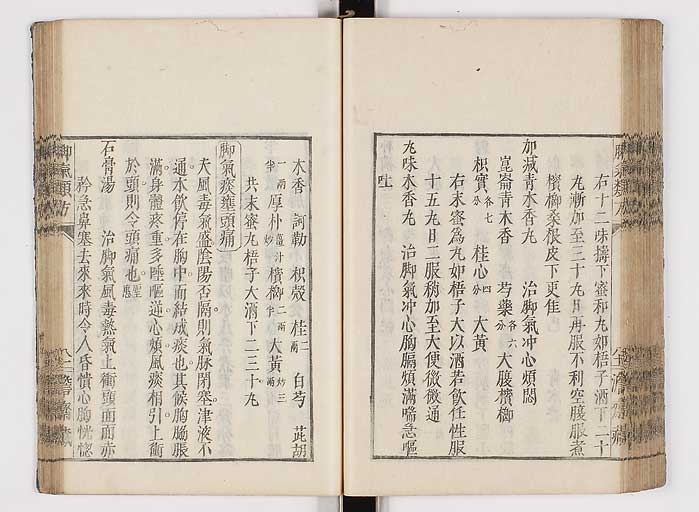 右十二味擣下蜜和丸如梧子酒下二十
丸漸加至三十丸日再服不利空腹服煮
檳榔桑根皮下更佳
加減青木香丸　治脚氣冲心煩悶
崑崙青木香　芍藥各六分　大腹檳榔
枳實各七分　桂心四分　大黃
右末蜜為丸如梧子大以酒若飲任性服
十五丸日二服稍加至大便微微通
九味木香丸　治脚氣冲心胸膈煩滿喘急嘔
吐
木香　訶勒　枳殼　桂二兩　白芍　茈胡
一兩半　厚朴薑汁炒　檳榔二兩半　大黃炒三兩
共末蜜丸梧子大酒下二三十丸
脚氣痰壅頭痛
夫風毒氣盛陰陽否隔則氣脉閉塞津液不
通水飲停在胸中而結成痰也其候胸膓脹
滿身體疼重多唾嘔逆心煩風痰相引上衝
於頭則令頭痛也聖惠
石膏湯　治脚氣風毒熱氣上衝頭面面赤
矜急鼻塞去來來時令人昏憒心胸恍惚
脚氣類方